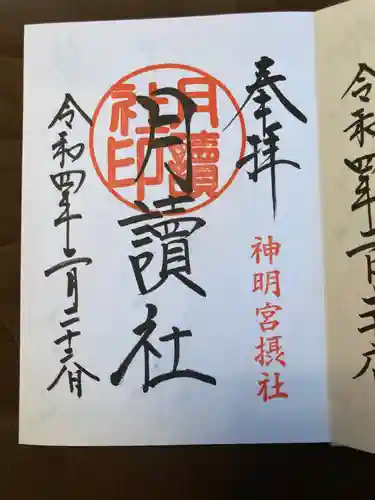 奉拝
神明宮摂社
月讀社
月讀
社印
令和四年二月二十三日
令和四年二月二十